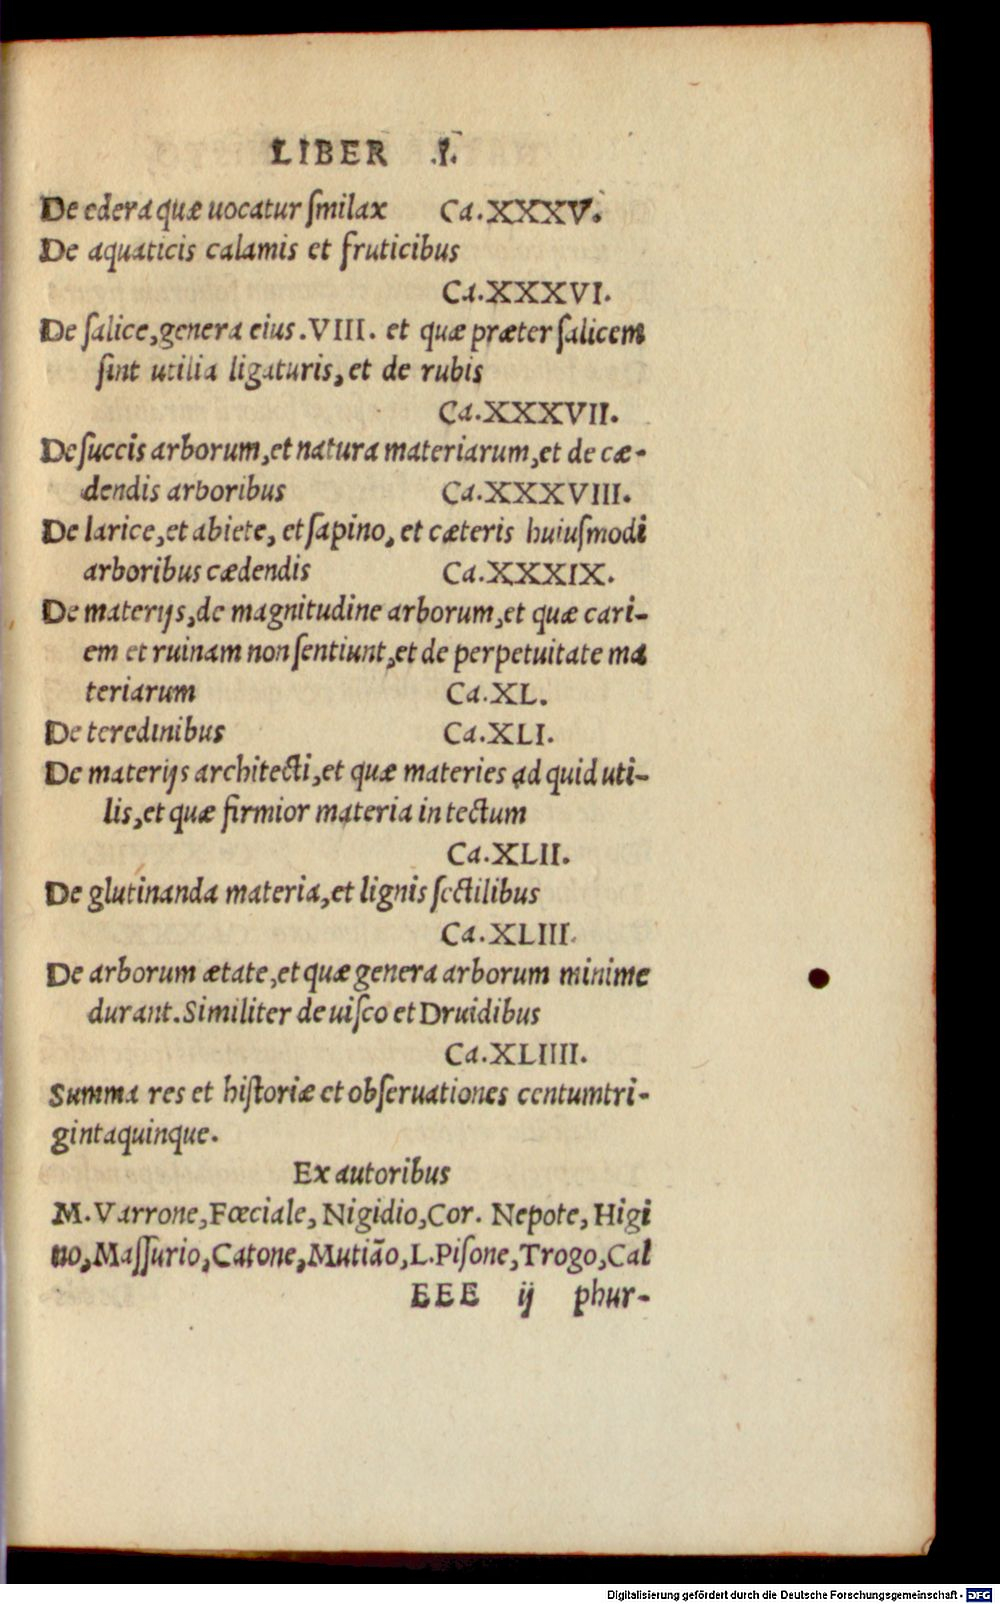 LIBER .I.
De edera quæ uocatur ſmilax Ca.XXXV.
De aquaticis calamis et fruticibus
Ca.XXXVI.
De ſalice,genera eius.VIII. et quæ præter ſalicem
ſint utilia ligaturis,et de rubis
Ca.XXXVII.
De ſuccis arborum,et natura materiarum,et de cæ-
dendis arboribus Ca.XXXVIII.
De larice,et abiete, et ſapino, et cæteris huiuſmodi
arboribus cædendis Ca.XXXIX.
De materijs,de magnitudine arborum,et quæ cari-
em et ruinam non ſentiunt,et de perpetuitate ma
teriarum Ca.XL.
De teredinibus Ca.XLI.
De materijs architecti,et quæ materies ad quid uti-
lis,et quæ firmior materia in tectum
Ca.XLII.
De glutinanda materia,et lignis ſectilibus
Ca.XLIII.
De arborum ætate,et quæ genera arborum minime
durant.Similiter de uiſco et Druidibus
Ca.XLIIII.
Summa res et hiſtoriæ et obſeruationes centumtri-
gintaquinque.
Ex autoribus
M.Varrone,Fœciale, Nigidio,Cor. Nepote, Higi
no,Maſſurio,Catone,Mutiāo,L.Piſone,Trogo,Cal
EEE ij phur-
Digitalisierung gefördert durch die Deutsche Forschungsgemeinschaft - DFG